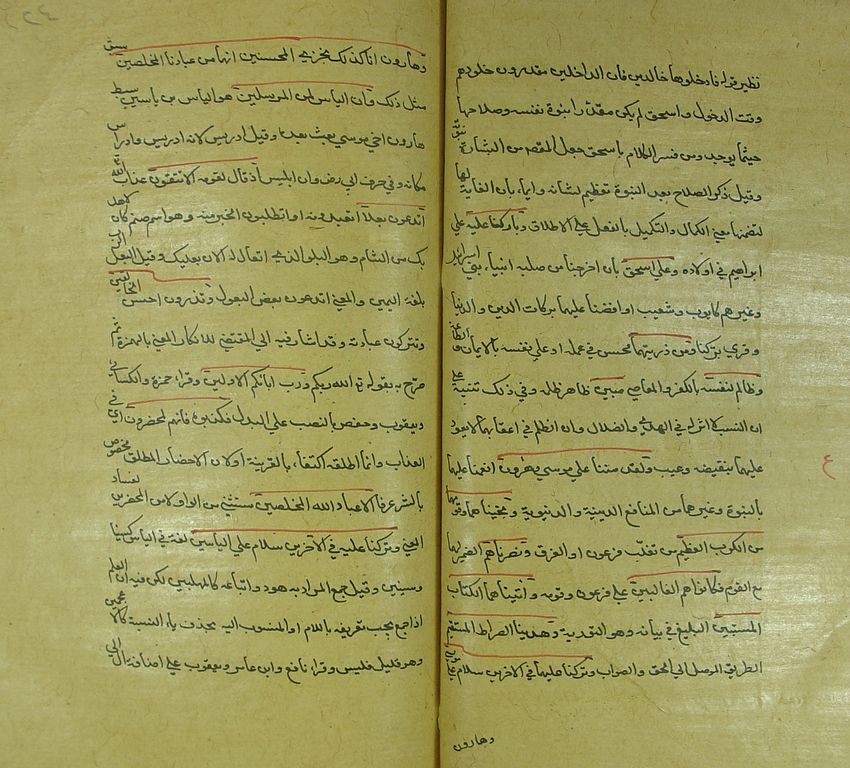 نظير قوله فادخلوها خالدين فان الداخلين مقدرون خلودهم
وقت الدخول واسحق لم يكن مقدرا نبوة نفسه وصلاحها
حيثما يوجد ومن فسر الغلام باسحق جعل المقصد من البشارة نبوته
وقيل ذكر الصلاح بعد النبوة تعظيم لشانه وايماء بان الغاية لها
لتضمنها معني الكمال والتكميل بالفعل علي الاطلاق وباركنا عليه علي
ابراهيم في اولاده وعلي اسحق بان اخرجنا من صلبه انبياء بني اسرائيل
وغيرهم كايوب وشعيب او افضنا عليهما بركات الدين والدنيا
وقري بركنا ومن ذريتهما محسن في عمله او علي نفسه بالايمان والطاعة
وظالم لنفسه بالكفر والمعاصي مبين ظاهر ظلمه وفي ذلك تنبيه علي
ان النسب لا اثر له في الهدي والضلال وان الظلم في اعقابهما لا يعود
عليهما بنقيصة وعيب ولقد مننا علي موسي وهرون انعمنا عليهما
بالنبوة وغيرها من المنافع الدينية والدنيوية ونجيناهما وقومهما
من الكرب العظيم من تغلب فرعون او الغرق ونصرناهم الضمير لهما
مع القوم فكانوا هم الغالبين علي فرعون وقومه واتيناهما الكتاب
المستبين البليغ في بيانه وهو التورية وهديناهما الصراط المستقيم
الطريق الموصل الي الحق والصواب وتركنا عليهما في الاخرين سلام علي موسي
وهارون
وهارون انا كذلك نجزي المحسنين انهما من عبادنا المخلصين سبق
مثل ذلك وان الياس لمن المرسلين هو الياس بن ياسين سبط
هارون اخي موسي بعث بعده وقيل ادريس لانه قرئ ادريس وادراس
مكانه وفي حرف ابي رض وان ابليس اذ قال لقومه الا تتقون عذاب الله
اتدعون بعلا اتعبدونه او اتطلبون الخير منه وهو اسم صنم كان لاهل
بك من الشام وهو البلد الذي يقال له الان بعلبك وقيل البعل الرب
بلغة اليمن والمعني اتدعون بعض البعول وتذرون احسن الخالقين
وتتركون عبادته وقد اشار فيه الي المقتضي للانكار المعني بالهمزة ثم
صرح به بقوله الله ربكم ورب ابائكم الاولين وقرا حمزة والكسائي
ويعقوب وحفص بالنصب علي البدل فكذبوه فانهم لمحضرون اي في
العذاب وانما اطلقه اكتفاء بالقرينة او لان الاحضار المطلق مخصوص
بالشر عرفا الا عباد الله المخلصين مستثني من الواو لا من المحضرين لفساد
المعني وتركنا عليه في الاخرين سلام علي الياسين لغة في الياس كسينا
وسينين وقيل جمع المراد به هو واتباعه كالمهلبين لكن فيه ان العلم
اذا جمع يجب تعريفه باللام او المنسوب اليه بحذف ياء النسبة كالاعجمين
وهو قليل فليس وقرا نافع وابن عامر ويعقوب علي اضافة ال الي